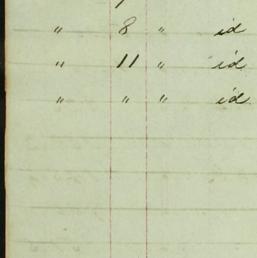 " 8 " id
" 11 " id
" " " id